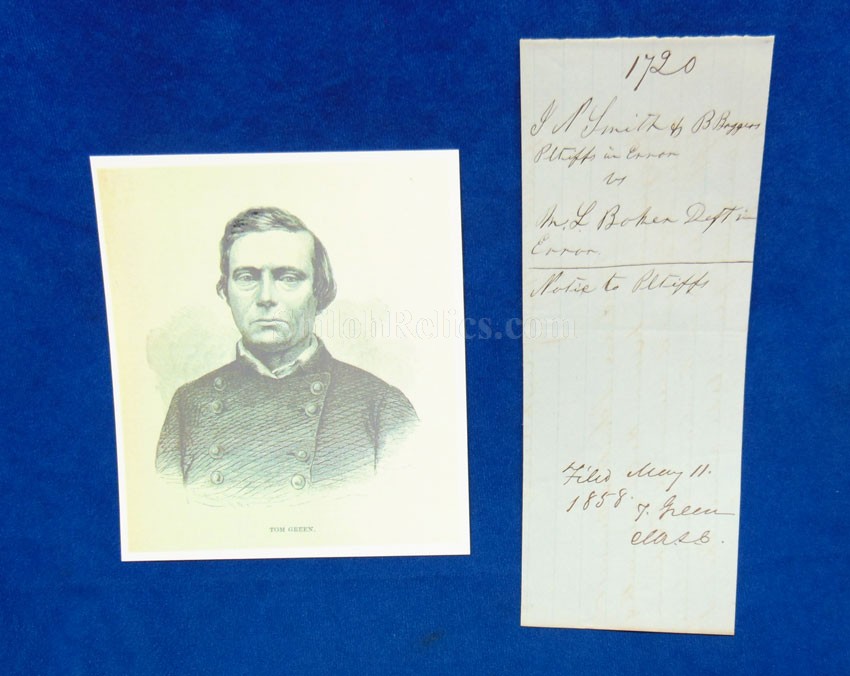 TOM GREEN.
ShilohRelics.com
1720
J N Smith & B Boggess
Pltiffs in Error
vs
M. L Boker Deft in
Error.
Notice to Pltiffs
Filed May 11.
1858. T. Green